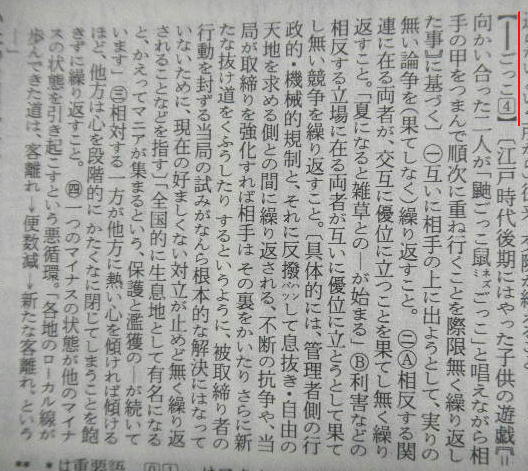 【―ごっこ④】〔江戸時代後期にはやった子供の遊戯〖=
向かい合った二人が「鼬ごっこ鼠ネズミごっこ」と唱えながら相
手の甲をつまんで順次に重ね行くことを際限無く繰り返し
た事〗に基づく〕㊀互いに相手の上に出ようとして、実りの
無い論争を(果てしなく)繰り返すこと。㊁Ⓐ相反する関
連に在る両者が、交互に優位に立つことを果てし無く繰り
返すこと。「夏になると雑草との―が始まる」Ⓑ利害などの
相反する立場に在る両者が互いに優位に立とうとして果て
し無い競争を繰り返すこと。〔具体的には、管理者側の行
政的・機械的規制と、それに反撥パツして息抜き・自由の
天地を求める側との間に繰り返される、不断の抗争や、当
局が取締りを強化すれば相手は その裏をかいたり さらに新
たな抜け道をくふうしたりするというように、被取締り者の
行動を封ずる当局の試みがなんら根本的な解決にはなって
いないために、現在の好ましくない対立が止めど無く繰り返
されることなどを指す〕「全国的に生息地として有名になる
と、かえってマニアが集まるという、保護と濫獲の―が続いて
います」㊂相対する一方が他方に熱い心を傾ければ傾ける
ほど、他方は、心を段階的に かたくなに閉じてしまうことを飽
きずに繰り返すこと。㊃一つのマイナスの状態が他のマイナ
スの状態を引き起こすという悪循環。「各地のローカル線が
歩んできた道は、客離れ→便数減→新たな客離れ、という
―」
**は重要語